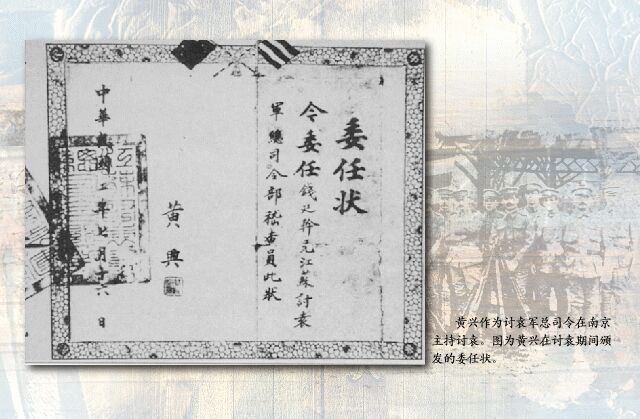 委任状
令委任錢廷幹充江蘇討袁
軍總司令部稽查員此狀
黃興
中華民國二年七月十六日
黄兴作为讨袁军总司令在南京
主持讨袁。图为黄兴在讨袁期间颁
发的委任状。